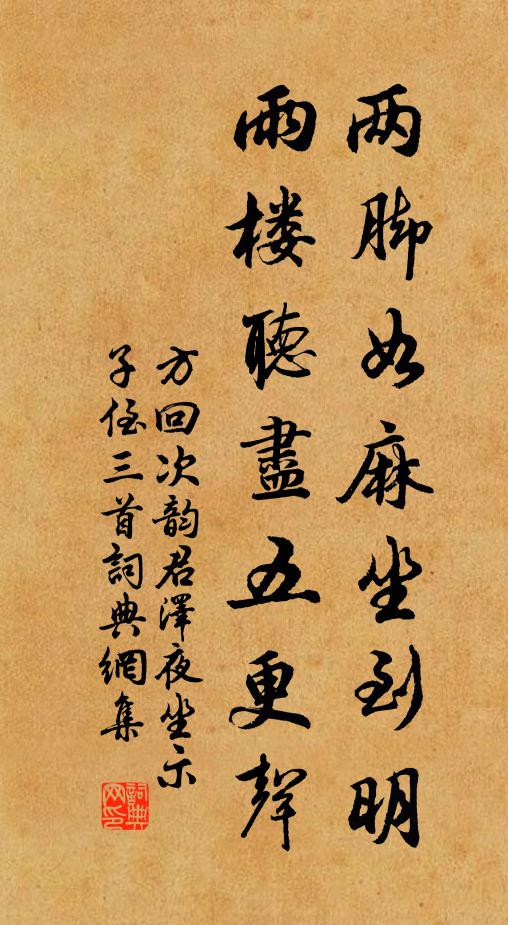 两脚如麻坐到明
雨楼聽盡五更聲
方回次韵君澤夜坐示
子侄三首詞典網集
詞典网印